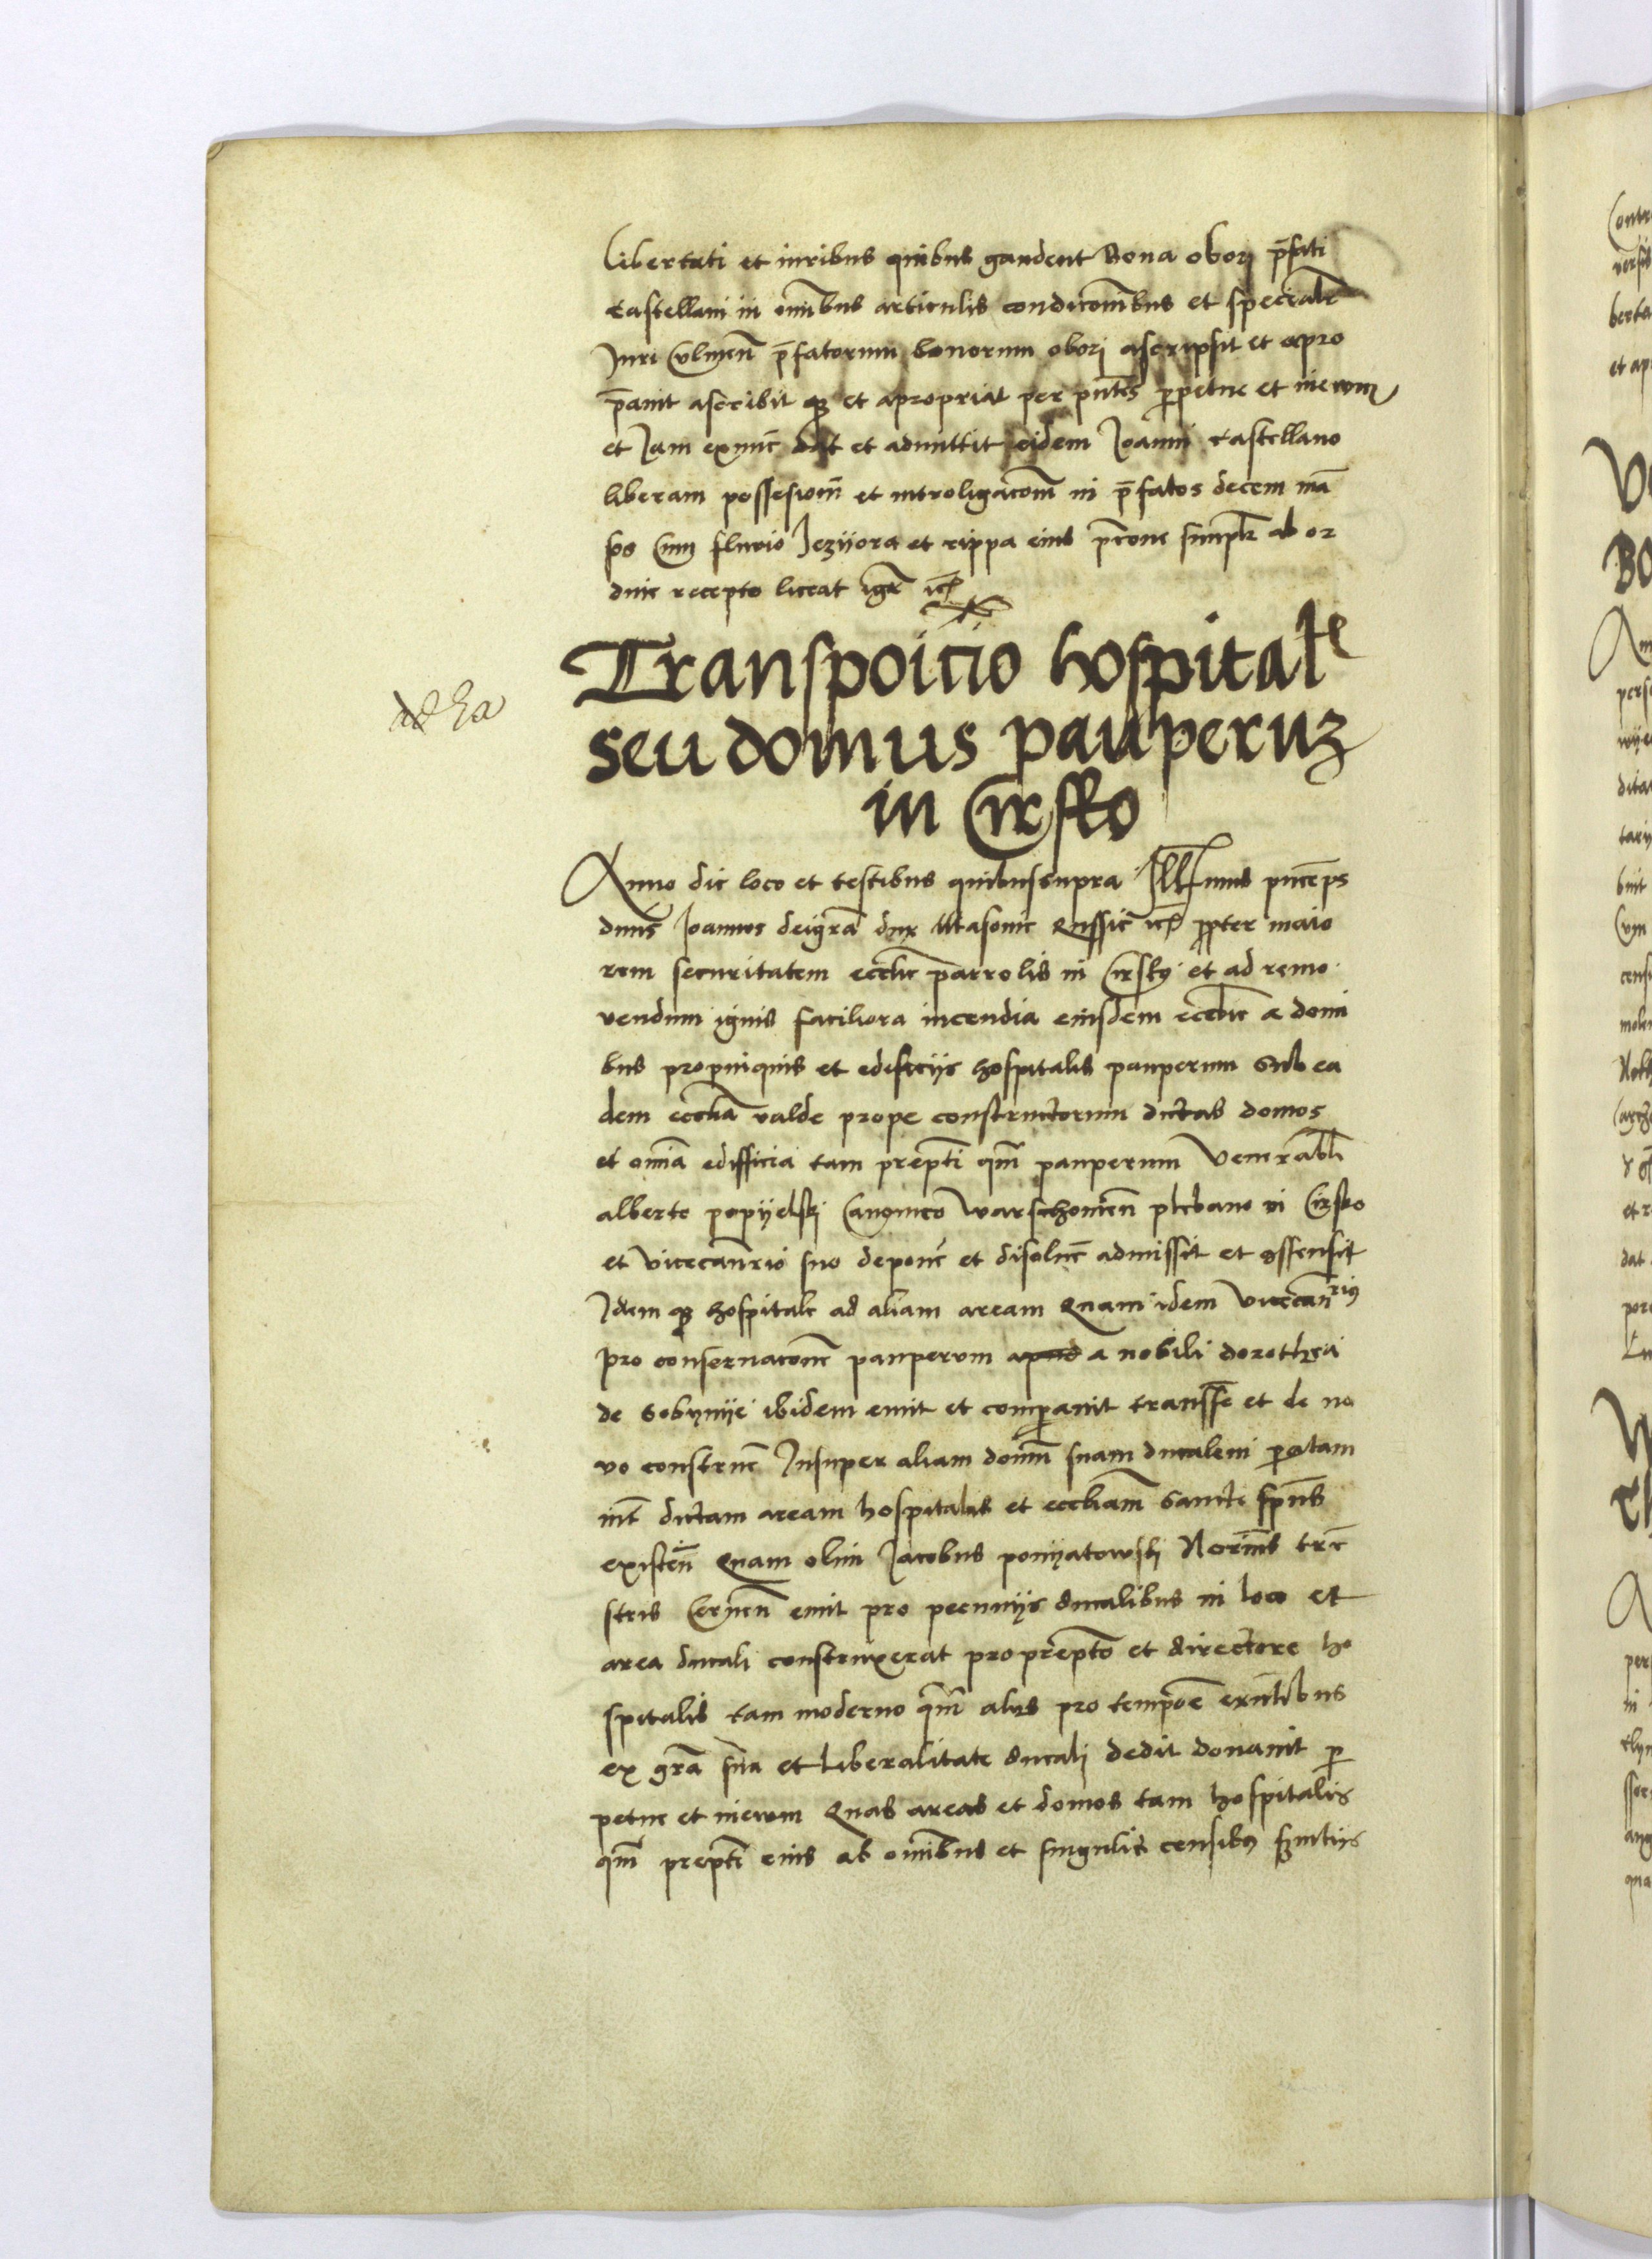 libertati et iuribus quibus gaudent Bona obori p̄fati
castellani in om̄ibus articulis condic̄onibus et specialit̄
Juri Culmen̄ p̄fatorum bonorum obori ascripsit et apro
p̄auit ascribit qꝫ et apropriat per pn̄tes ꝑpetue et in ewm
et Jam exnūc dat et admittit eidem Joanni castellano
liberam possesionē et introligac̄onē in p̄fatos decem mā
sos Cum fluvio Jezyora et rippa eius simplr̄ ab or
dine recepto liceat igr̄ ic̄
Transpoicio hospitale
seu domus pauperuꝫ
in Cirsko
ad
Anno die loco et testibus quibus supra Ill̄mus princeps
dn̄s Joannes dei grā dux Masouie Russie ic̄ ꝓpter maio
rem securitatem eccl̄ie parrolis in Cirsky et ad remo
vendum ignis faciliora incendia eiusdem eccl̄ie a domi
bus propinquis et edificijs hospitalis pauperum Sub ea
dem eccl̄ia valde prope constructorum dictas domos
et om̄ia edifficia tam prep̄ti qm̄ pauperum Venerabl̄i
alberto popyelski Canonico Warschouien̄ plebano in Cirsko
et vicecanc̄rio suo depon̄e et disolue̅ admissit et
Idem qꝫ hospitale ad aliam aream Quam idem vicecan̄rius
pro conseruac̄one pauperum apud a nobili dorothea
de Sobynye ibidem emit et comparauit transfe̅ et de no
vo construe̅ Insuper aliam domū suam ducalem
int̄ dictam aream hospitalis et eccl̄iam Sancti sp̄us
existen̄ Quam olim Jacobus ponyatowski Not̄ius tr̄e
stris Cernen̄ emit pro pecunijs ducalibus in loco et
area ducali construxerat pro prep̄to et directore ho
spitalis tam moderno qm̄ alijs pro tempore exn̄tibus
ex grā sua et liberalitate ducali dedit donauit ꝑ
petue et in ewm Quas areas et domos tam hospitalis
qm̄ prep̄ti eius ab om̄ibus et singulis censibꝫ